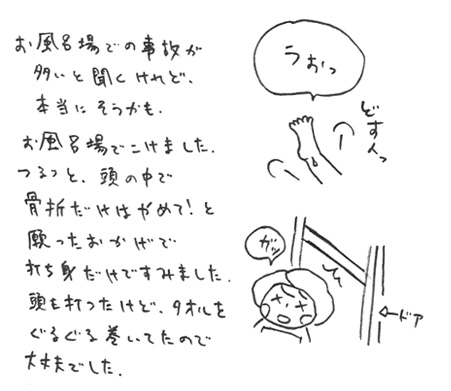 お風呂場での事故が
多いと聞くけれど、
本当にそうかも.
お風呂場でこけました.
つるっと、頭の中で
骨折だけはやめて!と
願ったおかげで
打ち身だけですみました.
頭も打ったけど、タオルを
ぐるぐる巻いてたので
大丈夫でした.
うおっ
どすんっ
ガンッ
←ドア